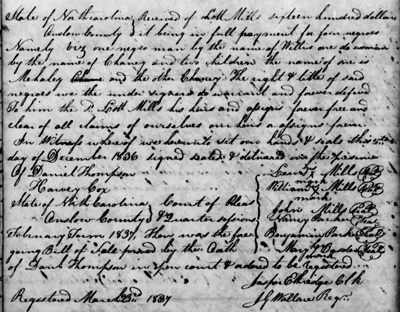 State of North Carolina Received of Lott Mills sixteen hundred dollars
Onslow County it being in full payment for four negroes
Namely viz one negro man by the name of Willis one do woman
by the name of Chaney and two children the name of one is
Mahaley and the other Chaney The right & title of said
negroes we the under signed do warrant and forever defend
To him the Lott Mills his heirs and assigns forever free and
clear of all claims of ourselves our heirs or assigns forever
In Witness whereof we hereunto set our hands & seals this
day of December 1836 signed sealed & delivered in the presence
Of Daniel Thompson
Mills
mark
Harvey Cox
William Mills
State of North Carolina Court of Pleas
John Mills Seal
Onslow County & Quarter sessions
Nancy
February Term 1837, Then was the fore
Benjamin
going Bill of Sale proved by the Oath
Mary
mark
of Danl Thompson in open court & ordered to be registered
Jasper Ethridge Clk
Registered March 1837
J G Wallace Regr